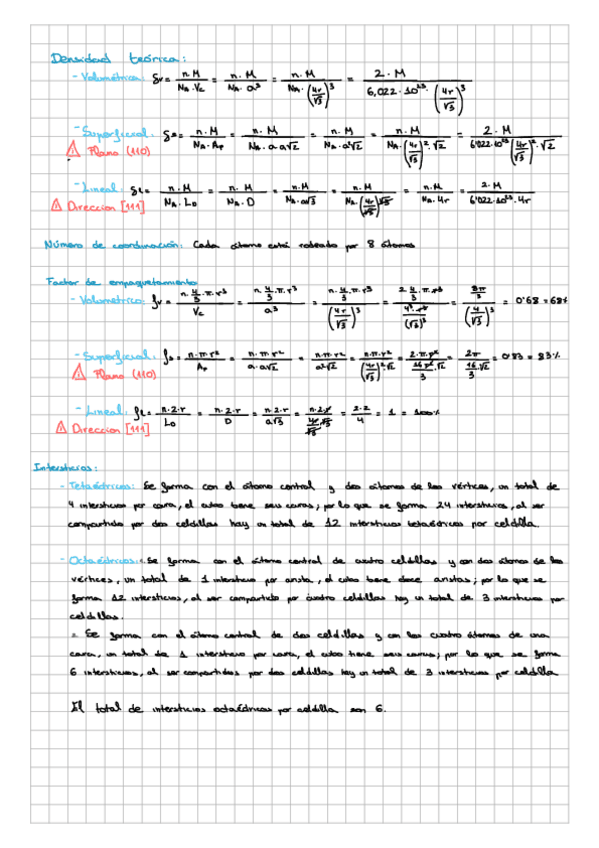 Densidad teórica:
- Volumétrica: δv = n·M / NA·Vc = n·M / NA·a³ = n·M / NA·(4r/√3)³ = 2·M / 6,022·10²³·(4r/√3)³
- Superficial: δs = n·M / NA·Ap = n·M / NA·a·a√2 = n·M / NA·a²√2 = n·M / NA·(4r/√3)²·√2 = 2·M / 6'022·10²³(4r/√3)²·√2
⚠ Plano (110)
- Lineal: δL = n·M / NA·LD = n·M / NA·D = n·M / NA·a√3 = n·M / NA·(4r/√3)√3 = n·M / NA·4r = 2·M / 6'022·10²³·4r
⚠ Dirección [111]
Número de coordinación: Cada átomo está rodeado por 8 átomos
Factor de empaquetamiento
- Volumétrico: fv = n·4/3·π·r³ / Vc = n·4/3·π·r³ / a³ = n·4/3·π·r³ / (4r/√3)³ = 2·4/3·π·r³ / 4³·r³/(√3)³ = 8π/3 / (4/√3)³ = 0'68 = 68%
- Superficial: fs = n·π·r² / Ap = n·π·r² / a·a√2 = n·π·r² / a²√2 = n·π·r² / (4r/√3)²√2 = 2·π·r² / 16r²/3·√2 = 2π / 16/3·√2 = 0'83 = 83%
⚠ Plano (110)
- Lineal: fL = n·2·r / LD = n·2·r / D = n·2·r / a√3 = n·2·r / 4r/√3·√3 = 2·2 / 4 = 1 = 100%
⚠ Dirección [111]
Intersticios:
- Tetraédricos: Se forma con el átomo central y dos átomos de los vértices, un total de
4 intersticios por cara, el cubo tiene seis caras; por lo que se forma 24 intersticios, al ser
compartido por dos celdillas hay un total de 12 intersticios tetraédricos por celdilla.
- Octaédricos: · Se forma con el átomo central de cuatro celdillas y con dos átomos de los
vértices, un total de 1 intersticio por arista, el cubo tiene doce aristas; por lo que se
forma 12 intersticios, al ser compartido por cuatro celdillas hay un total de 3 intersticios por
celdillas.
· Se forma con el átomo central de dos celdillas y con los cuatro átomos de una
cara, un total de 1 intersticio por cara, el cubo tiene seis caras; por lo que se forma
6 intersticios, al ser compartidos por dos celdillas hay un total de 3 intersticios por celdilla
El total de intersticios octaédricos por celdilla son 6.